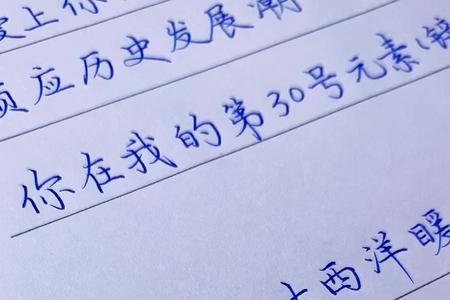 上你
顺应历史发展潮
你在我的第30号元素(锌
西洋暖